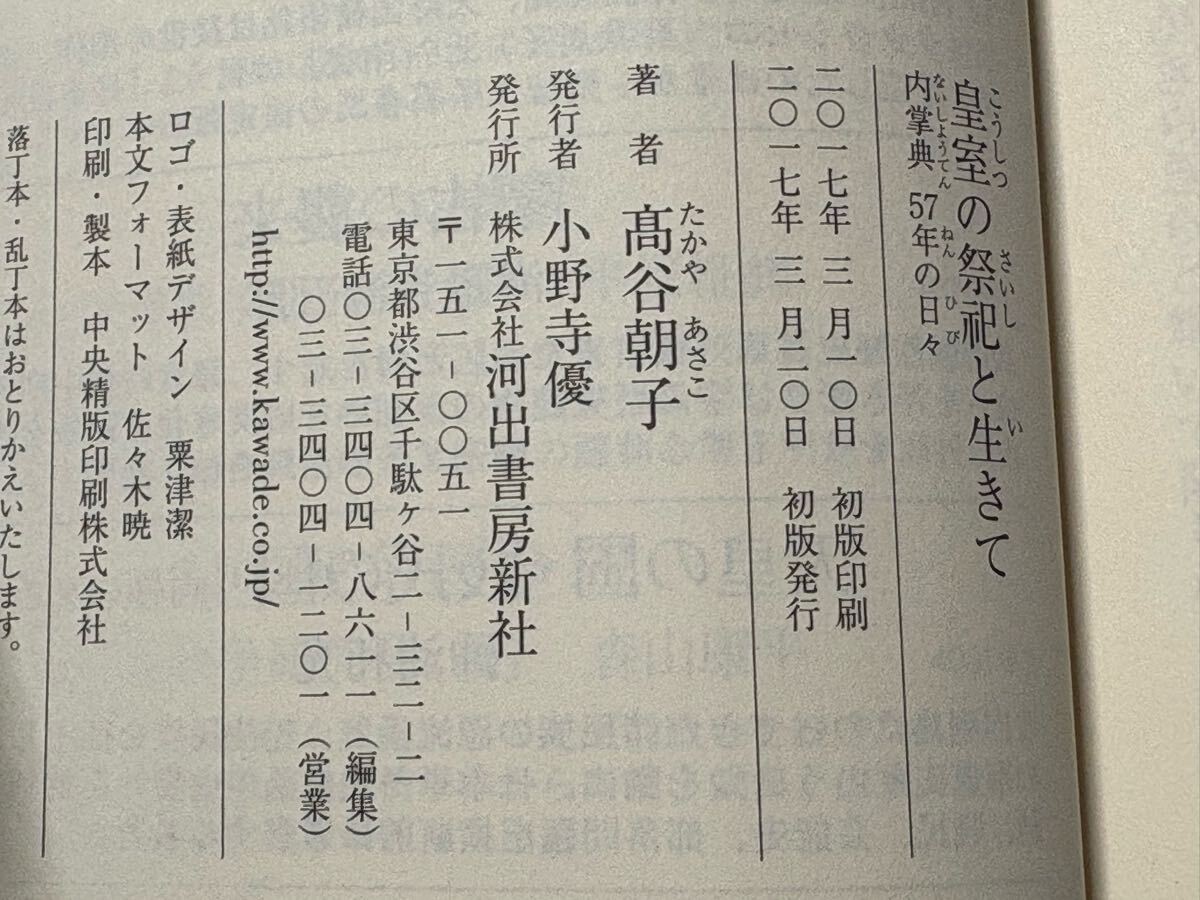 皇室の祭祀と生きて
こうしつ さいし い
内掌典 57年の日々
ないしようてん ねん ひび
二〇一七年 三 月一〇日 初版印刷
二〇一七年 三 月二〇日 初版発行
著 者 髙谷朝子
たかや あさこ
発行者 小野寺優
発行所 株式会社河出書房新社
〒一五一-〇〇五一
東京都渋谷区千駄ヶ谷二-三二-二
電話〇三-三四〇四-八六一一（編集）
〇三-三四〇四-一二〇一（営業）
http://www.kawade.co.jp/
ロゴ・表紙デザイン 粟津潔
本文フォーマット 佐々木暁
印刷・製本 中央精版印刷株式会社
落丁本・乱丁本はおとりかえいたします。